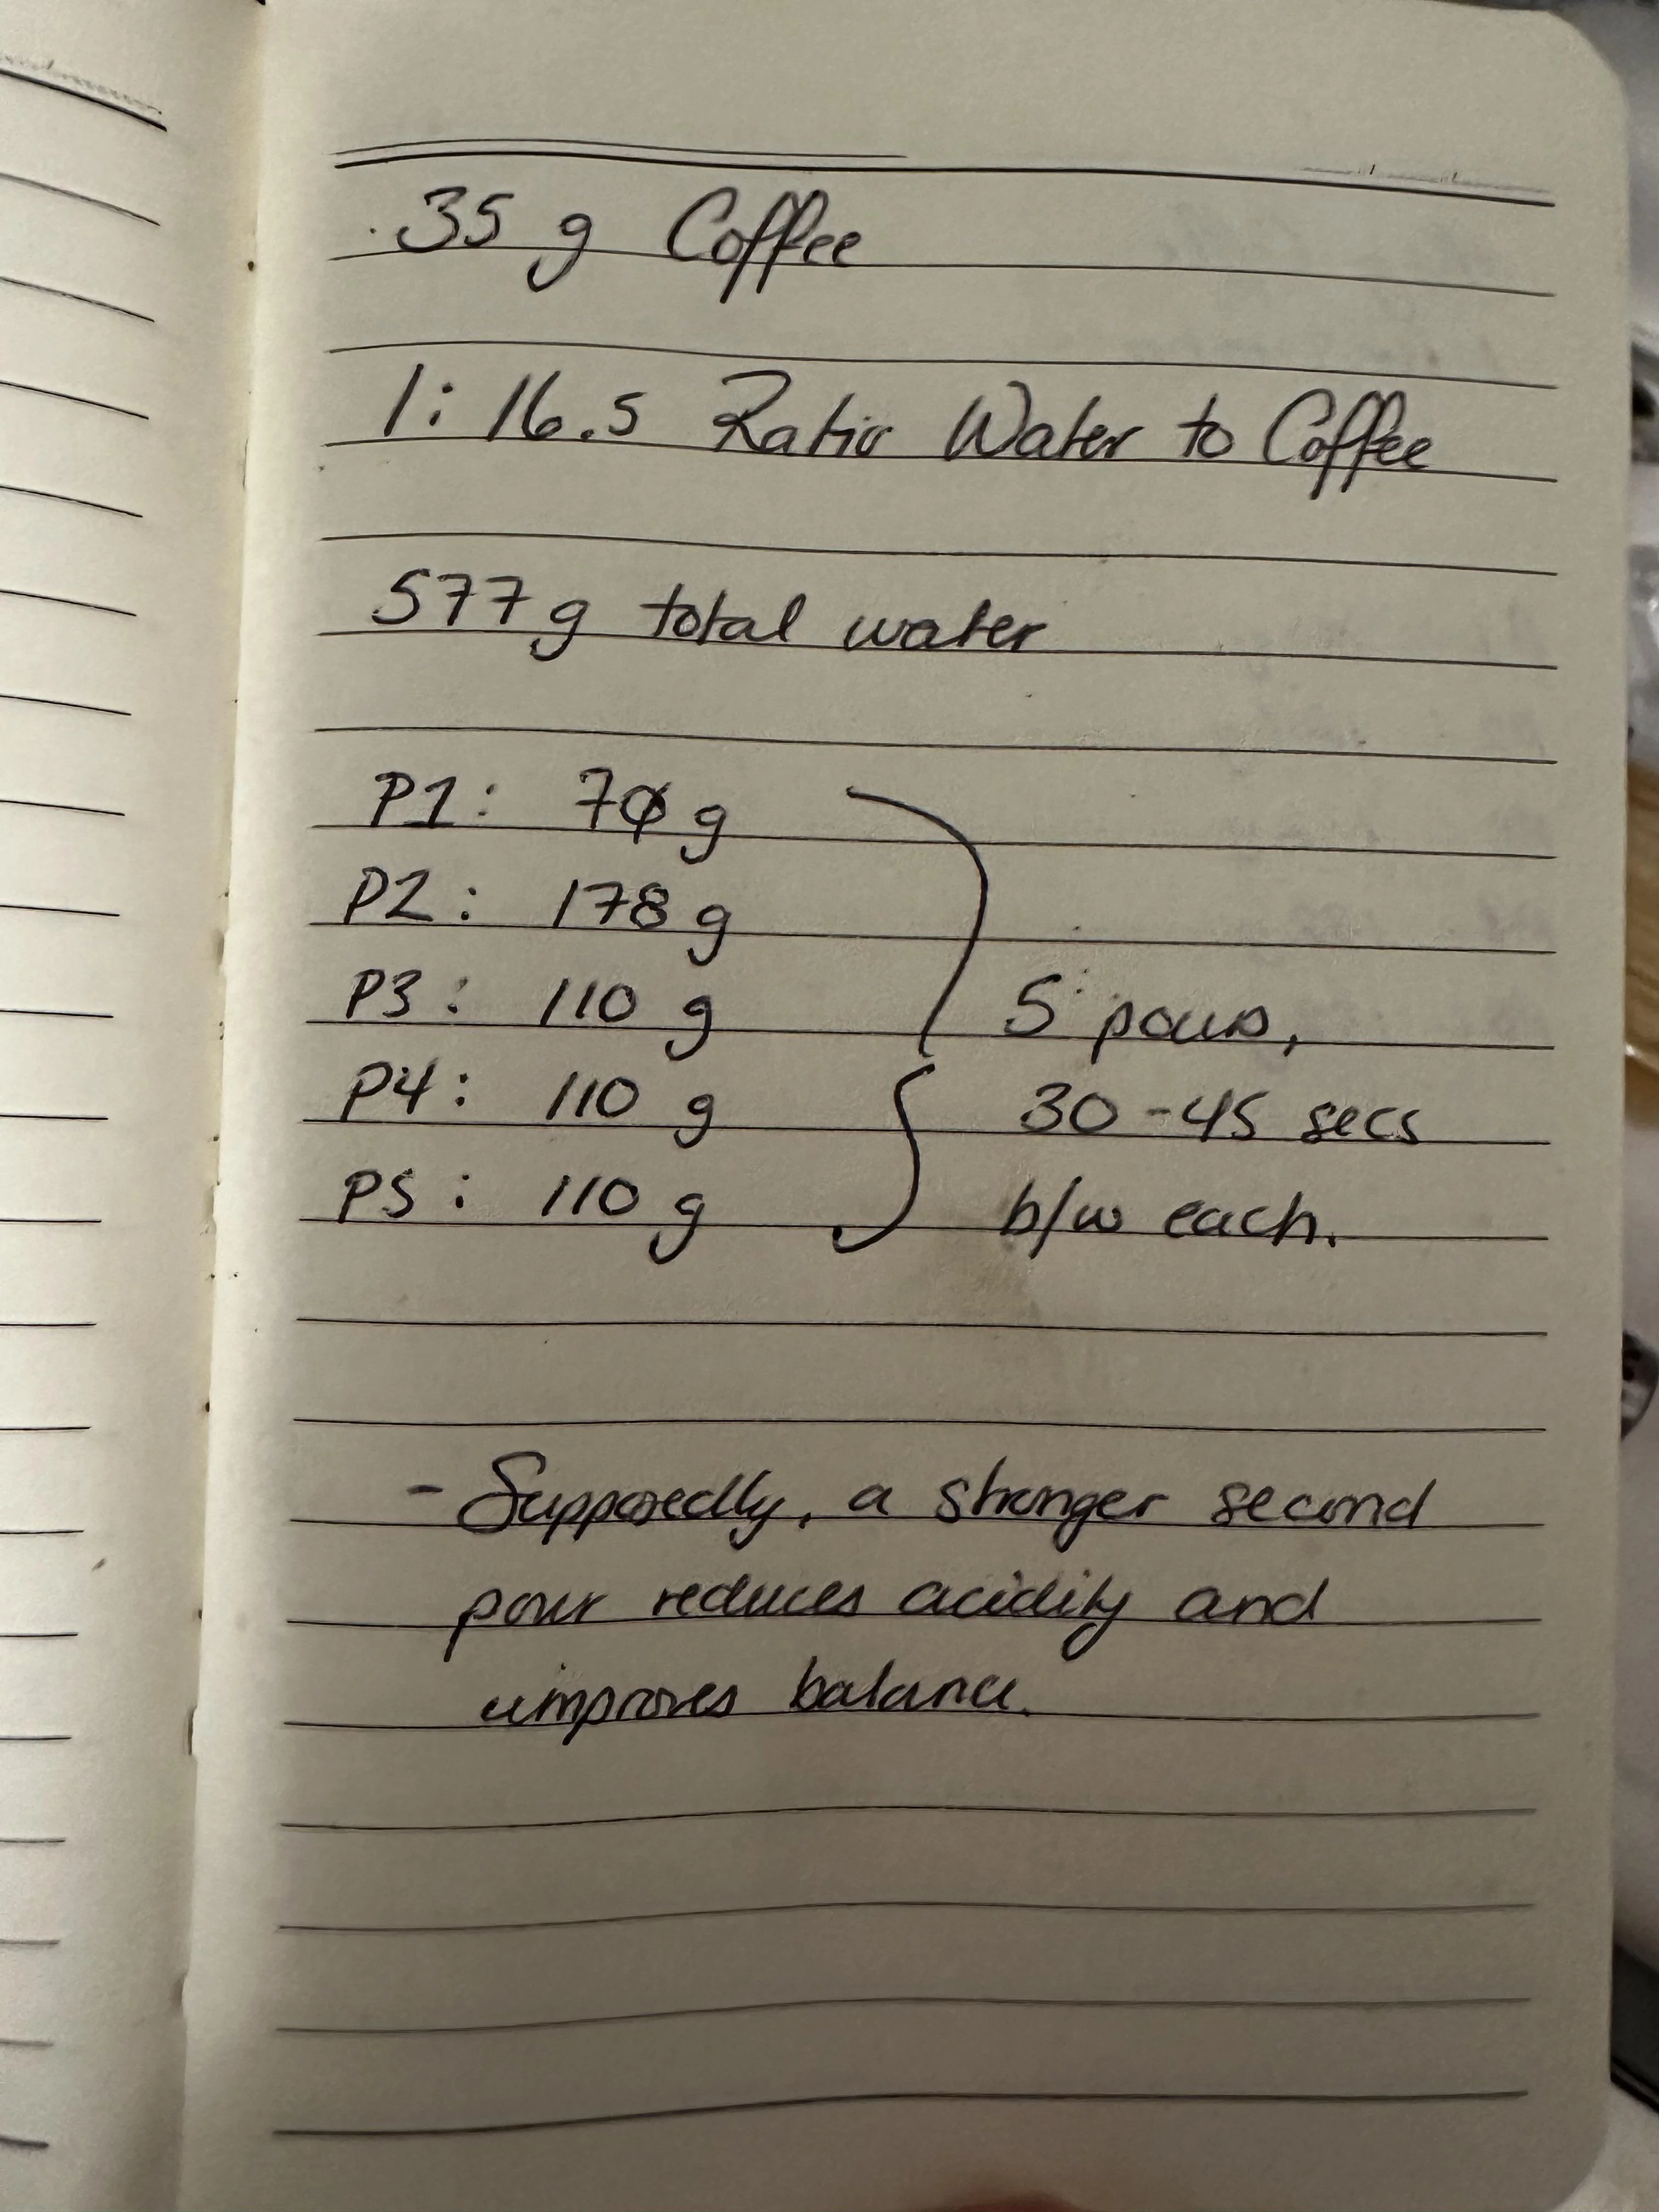 35 g Coffee
1:16.5 Ratio Water to Coffee
577g total water
P1: 70 g
P2: 178 g
P3: 110 g
P4: 110 g
P5: 110 g
5 pours,
30-45 secs
b/w each.
- Supposedly, a stronger second
pour reduces acidity and
improves balance.